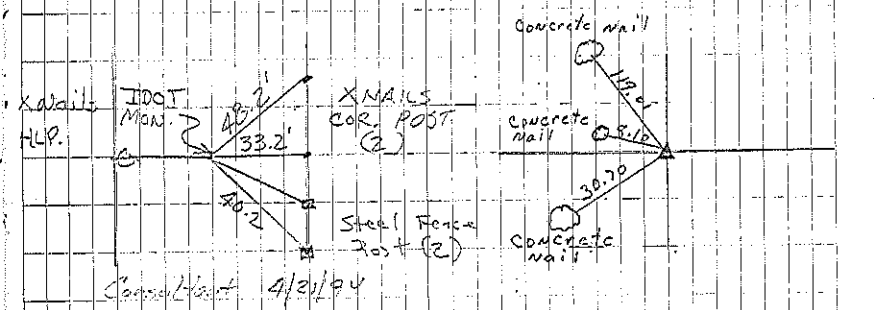 X Nails
H.L.P.
IDOT
MON.
48.2'
33.2'
40.2
X NAILS
COR. POST
(2)
Steel Fence
Post (2)
Consultant 4/21/94
Concrete Nail
Concrete
Nail
30.70
Concrete
Nail